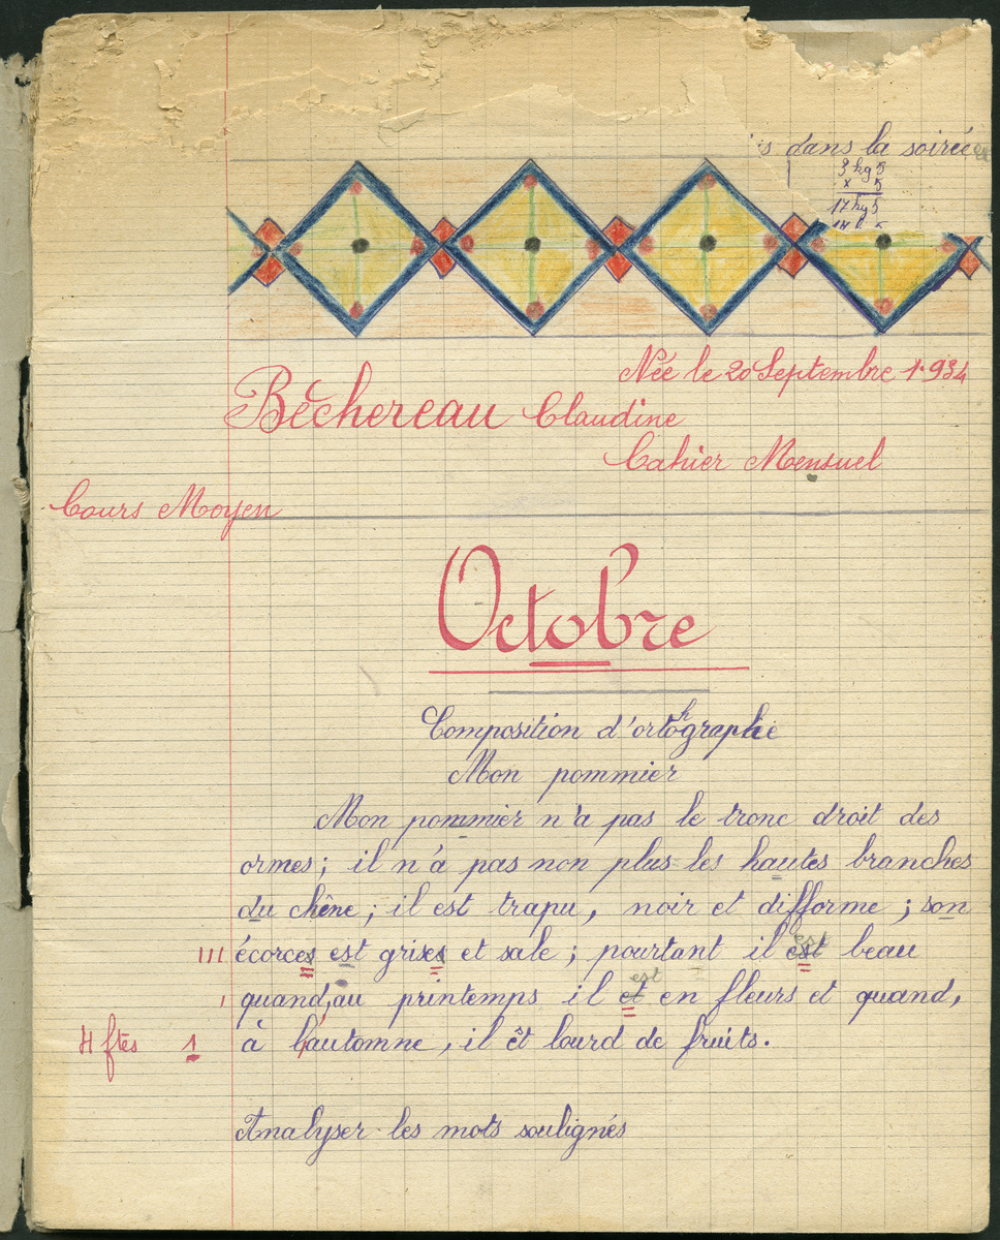 s dans la soirée
3 kg 5
x 5
17 kg 5
Née le 20 Septembre 1934
Béchereau Claudine
Cahier Mensuel
Cours Moyen
Octobre
Composition d'orthographie
Mon pommier
Mon pommier n'a pas le tronc droit des
ormes; il n'a pas non plus les hautes branches
du chêne; il est trapu, noir et difforme; son
III écorces est grises et sale; pourtant il est est beau
I quand, au printemps il et est en fleurs et quand,
4 ftes 1 à l'automne, il êt lourd de fruits.
Analyser les mots soulignés